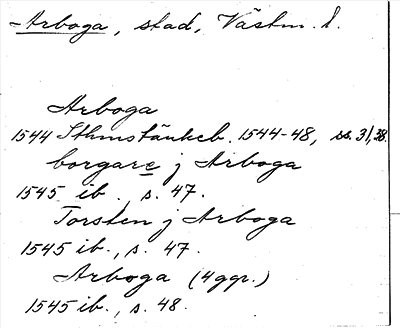 Arboga, stad, Västm. l.
Arboga
1544 Sthmstänkeb. 1544-48, ss. 31, 38.
borgare j Arboga
1545 ib., s. 47.
Torsten j Arboga
1545 ib., s. 47.
Arboga (4 ggr.)
1545 ib., s. 48.